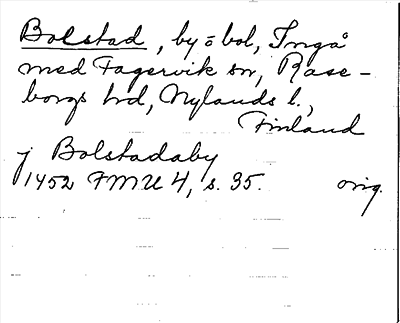 Bolstad, by = bol, Ingå
med Fagervik sn, Rase-
borgs hd, Nylands l.,
Finland
j Bolstadaby
1452 FMU 4, s. 35. orig.